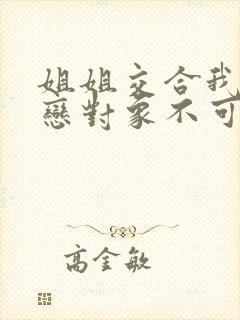 姐姐交合我
戀對象不可
高金敏